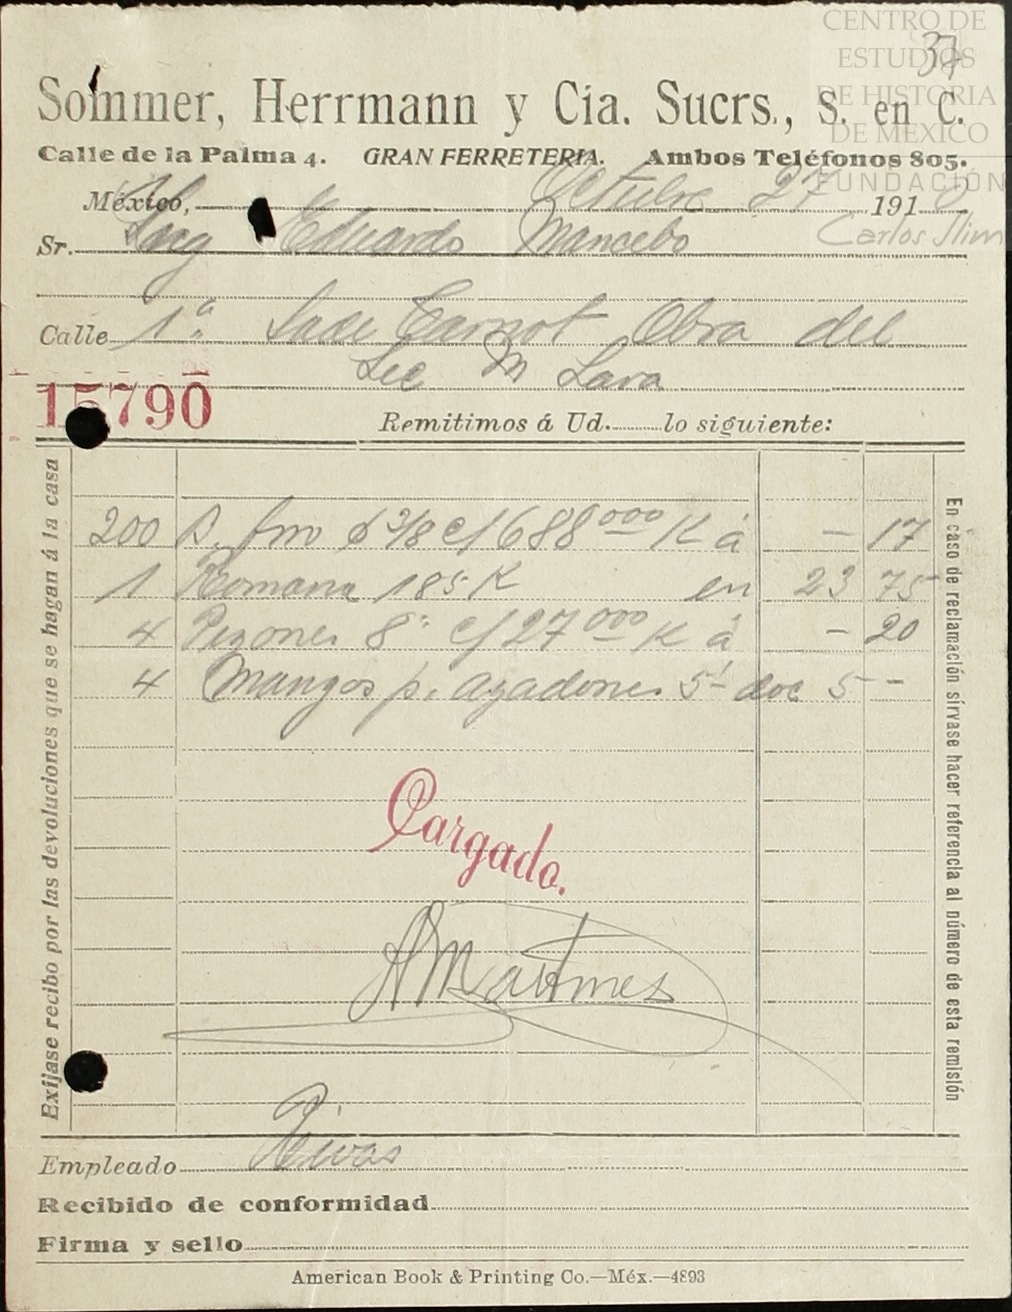 CENTRO DE
ESTUDIOS
DE HISTORIA
DE MÉXICO
FUNDACIÓN
Carlos Slim
37
Sommer, Herrmann y Cia. Sucrs., S. en C.
Calle de la Palma 4. GRAN FERRETERIA. Ambos Teléfonos 805.
México, Octubre 27 191
Sr. Ing Eduardo Mancebo
Calle 1ª Sadi Carnot Obra del
Lic M Lara
15790
Remitimos á Ud. lo siguiente:
200 c/688 000 K á - 17
1 Romana 185 K en 23 75
4 Pizones 8" c/27 000 K á - 20
4 Mangos p. azadones 5- doc 5 -
Cargado.
AMartinez
Exíjase recibo por las devoluciones que se hagan á la casa
En caso de reclamación sírvase hacer referencia al número de esta remisión
Empleado Rivas
Recibido de conformidad
Firma y sello
American Book & Printing Co.—Méx.—4893